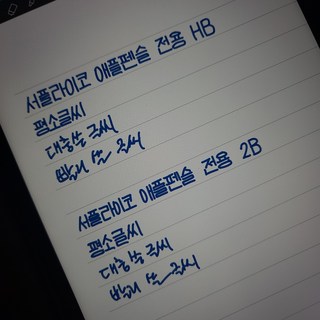 서플라이코 애플펜슬 전용 HB
평소글씨
대충 쓴 글씨
빨리 쓴 글씨
서플라이코 애플펜슬 전용 2B
평소글씨
대충 쓴 글씨
빨리 쓴 글씨